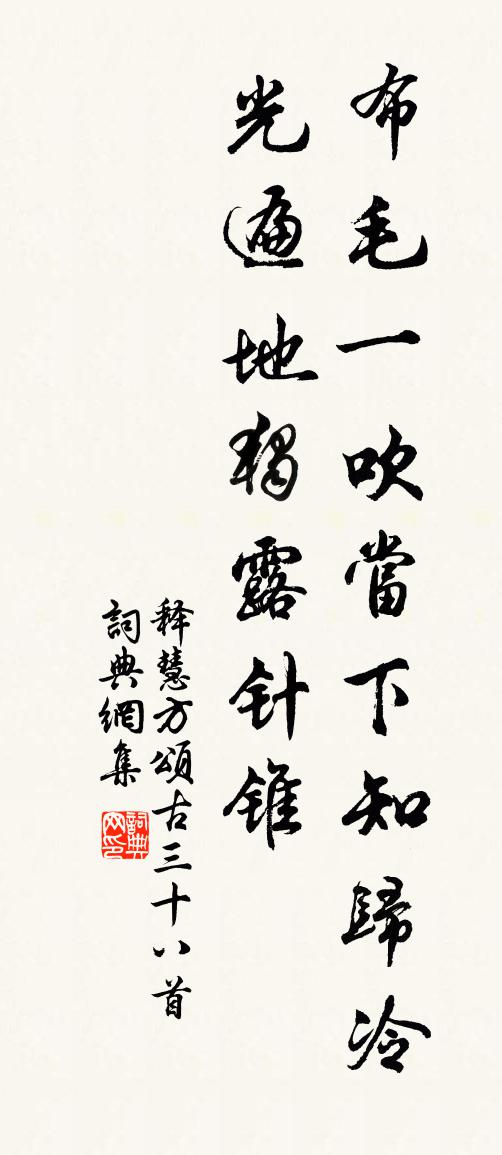 布毛一吹當下知歸冷
光遍地獨露针锥
释慧方頌古三十八首
詞典網集
詞典网印